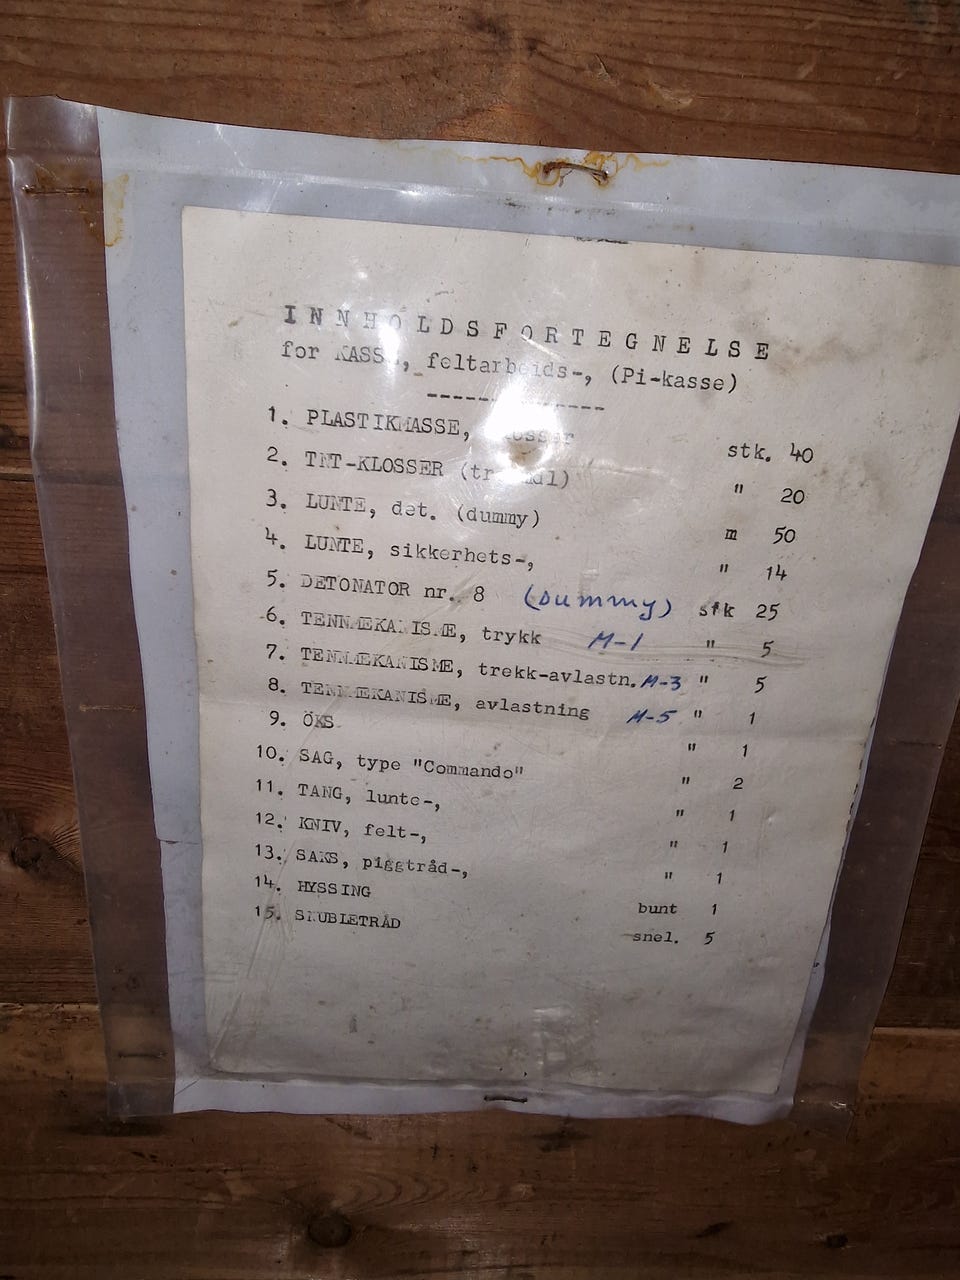 INNHOLDSFORTEGNELSE
for KASSE, feltarbeids-, (Pi-kasse)
1. PLASTIKMASSE, stk. 40
2. TNT-KLOSSER " 20
3. LUNTE, det. (dummy) m 50
4. LUNTE, sikkerhets-, " 14
5. DETONATOR nr. 8 (Dummy) stk 25
6. TENNMEKANISME, trykk M-1 " 5
7. TENNMEKANISME, trekk-avlastn. M-3 " 5
8. TENNMEKANISME, avlastning M-5 " 1
9. ÖKS " 1
10. SAG, type "Commando" " 2
11. TANG, lunte-, " 1
12. KNIV, felt-, " 1
13. SAKS, piggtråd-, " 1
14. HYSSING bunt 1
15. SNUBLETRÅD snel. 5